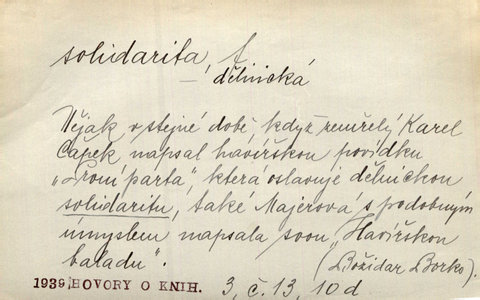 solidarita, f.
— , dělnická
Nějak v stejné době, když zemřelý Karel
Čapek napsal havířskou povídku
„První parta“, která oslavuje dělnickou
solidaritu, také Majerová s podobným
úmyslem napsala svou „Havířskou
baladu“. (Božidar Borko).
1939, HOVORY O KNIH. 3, č. 13, 10d